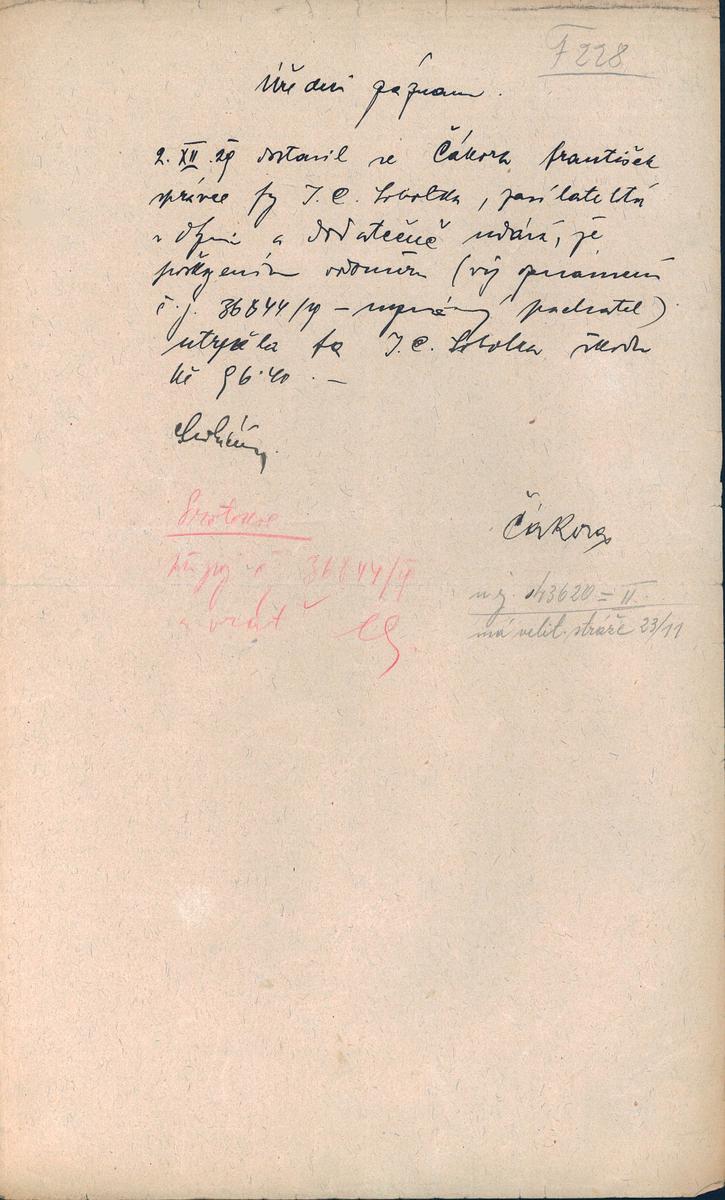 F 228
Úřední záznam.
2. XII. 29 dostavil se Čákora František
správce fy J. C. Sobotka, zasílatelská
a dodatečně udává, že
poškozením (viz oznámení
č. j. 36844/ – neznámý pachatel)
utrpěla fa J. C. Sobotka škodu
Kč 96·40. –
Čákora
Protokol
36844/
a vrátit
43620 = II.
má velit. stráže 23/11